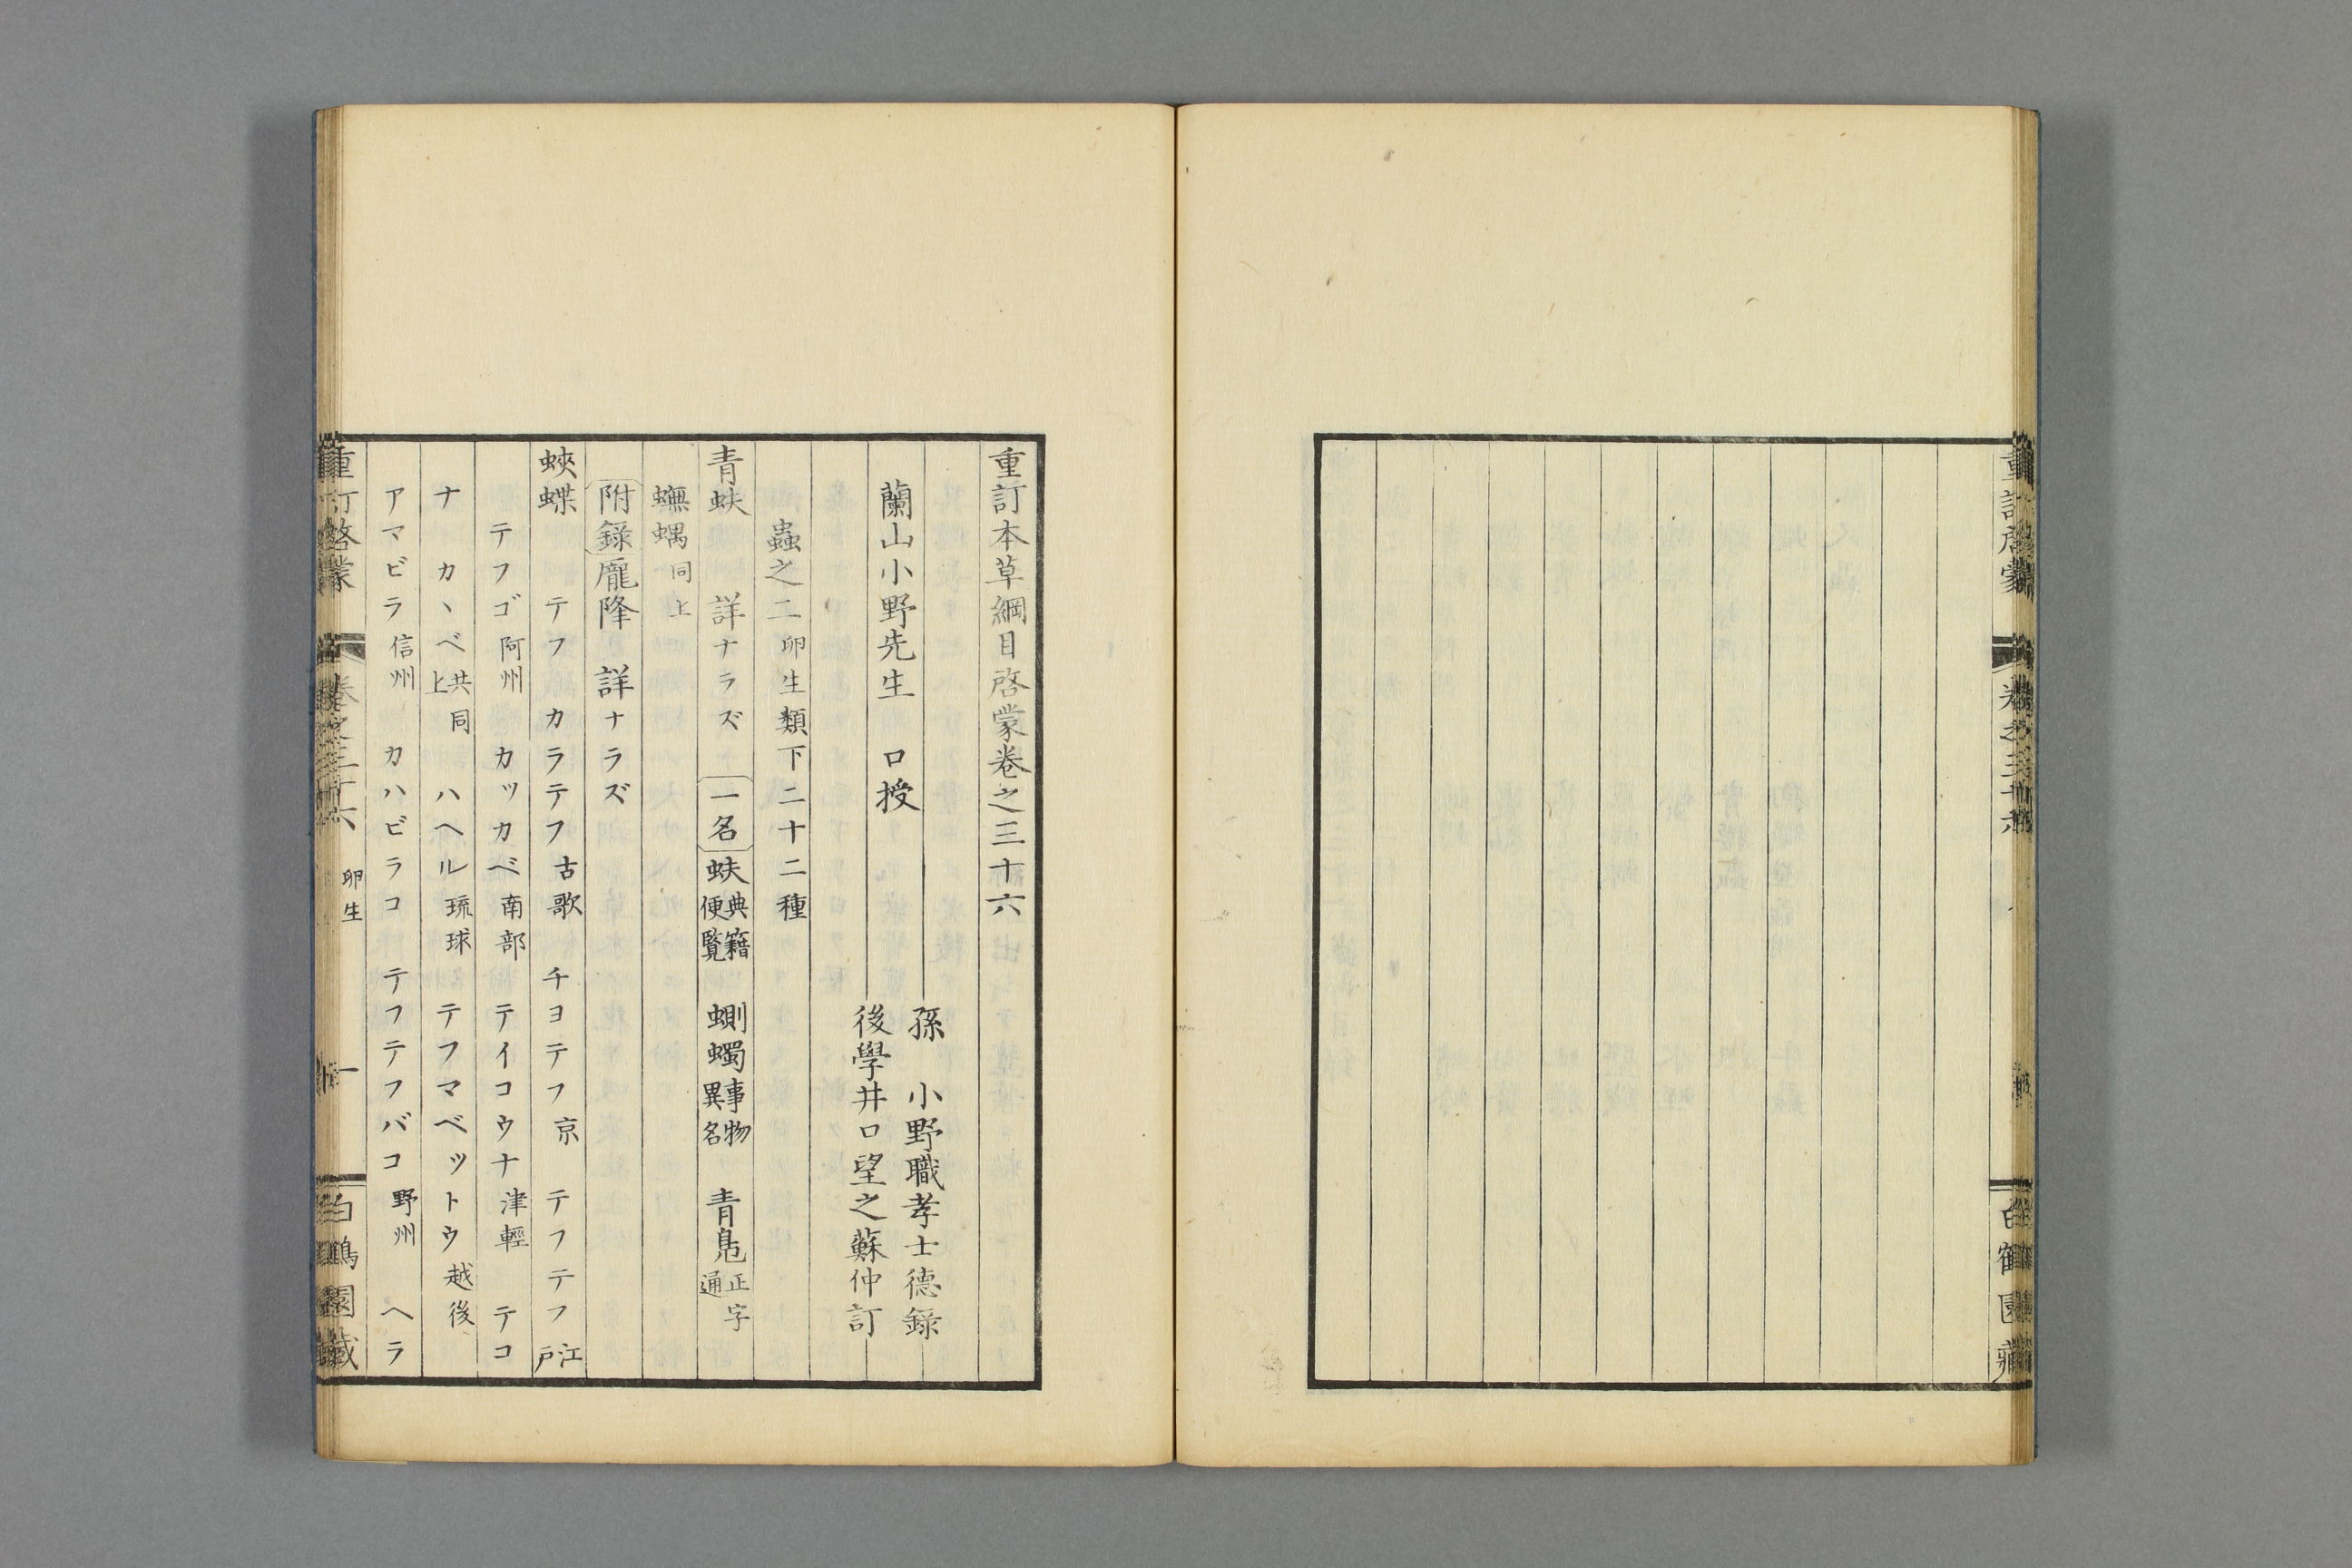 重訂本草綱目啓蒙卷之三十六
蘭山小野先生 口授
孫 小野職孝士德錄
後學井口望之蘇仲訂
蟲之二 卵生類下二十二種
青蚨 詳ナラズ 一名 蚨 典籍便覽 蝍蠋 事物異名 青鳧 正字通
蟱蝺 同上
附錄 龐降 詳ナラズ
蛺蝶 テフ カラテフ 古歌 チヨテフ 京 テフテフ 江戸
テフゴ 阿州 カッカベ 南部 テイコウナ 津輕 テコ
ナ カヽベ 共同上 ハヘル 琉球 テフマベットウ 越後
アマビラ 信州 カハビラコ テフテフバコ 野州 ヘラ
重訂啓蒙 卷之三十六 卵生 一 白鶴園藏